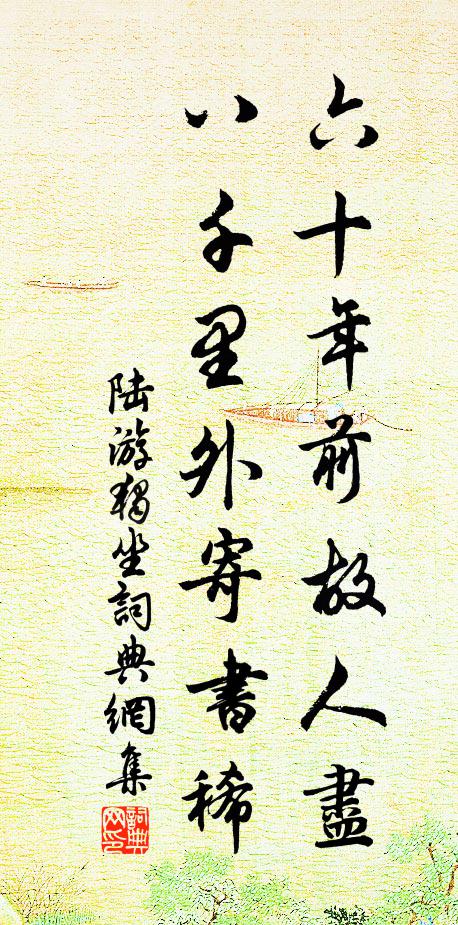 六十年前故人盡
八千里外寄書稀
陆游獨坐詞典網集
詞典
网印